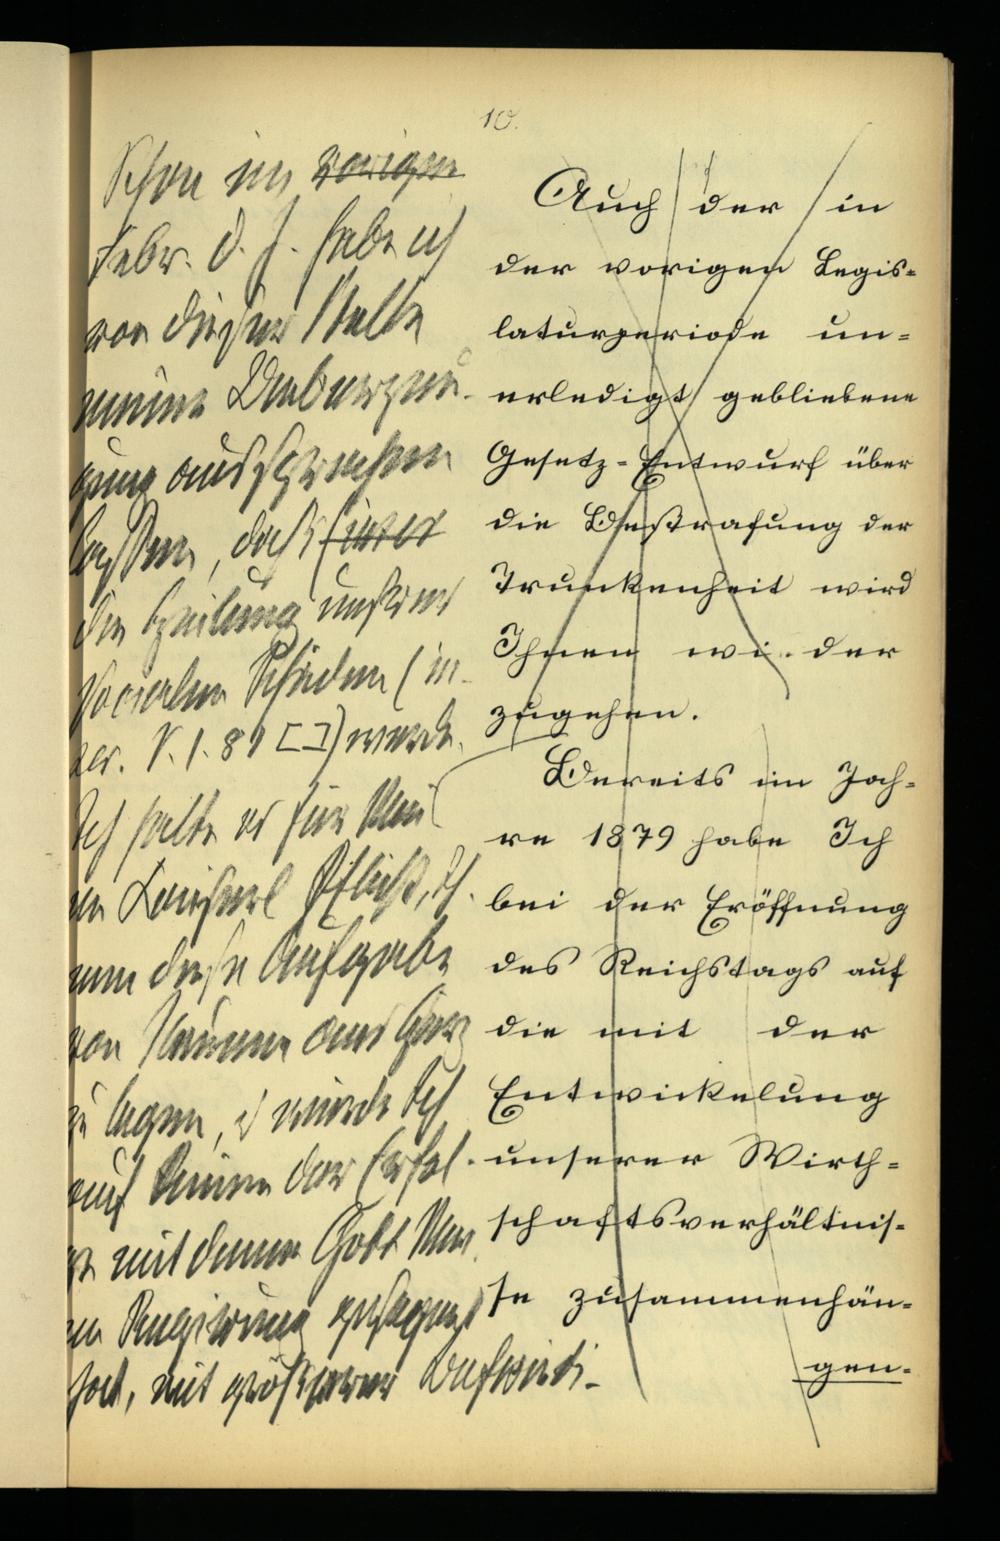 10.
Schon im vorigen
Febr. d. J. habe ich
von dieser Stelle
meine Ueberzeu-
gung aussprechen
lassen, daß
die Heilung unserer
socialen Schäden (in-
ser. S. 1. 81 [ ]) werde.
Ich halte es für Mei
ne Kaiserl Pflicht,
nun diese Aufgabe
von Neuem ans Herz
zu legen, u würde Ich
auf keinen der Erfol-
ge mit denen Gott Mei
ne Regierung gesegnet
hat, mit größerer Befriedi-
Auch der in
der vorigen Legis-
laturperiode un-
erledigt gebliebene
Gesetz-Entwurf über
die Bestrafung der
Trunkenheit wird
Ihnen wieder
zugehen.
Bereits im Jah-
re 1879 habe Ich
bei der Eröffnung
des Reichstags auf
die mit der
Entwickelung
unserer Wirth-
schaftsverhältnis-
se zusammenhän-
gen-